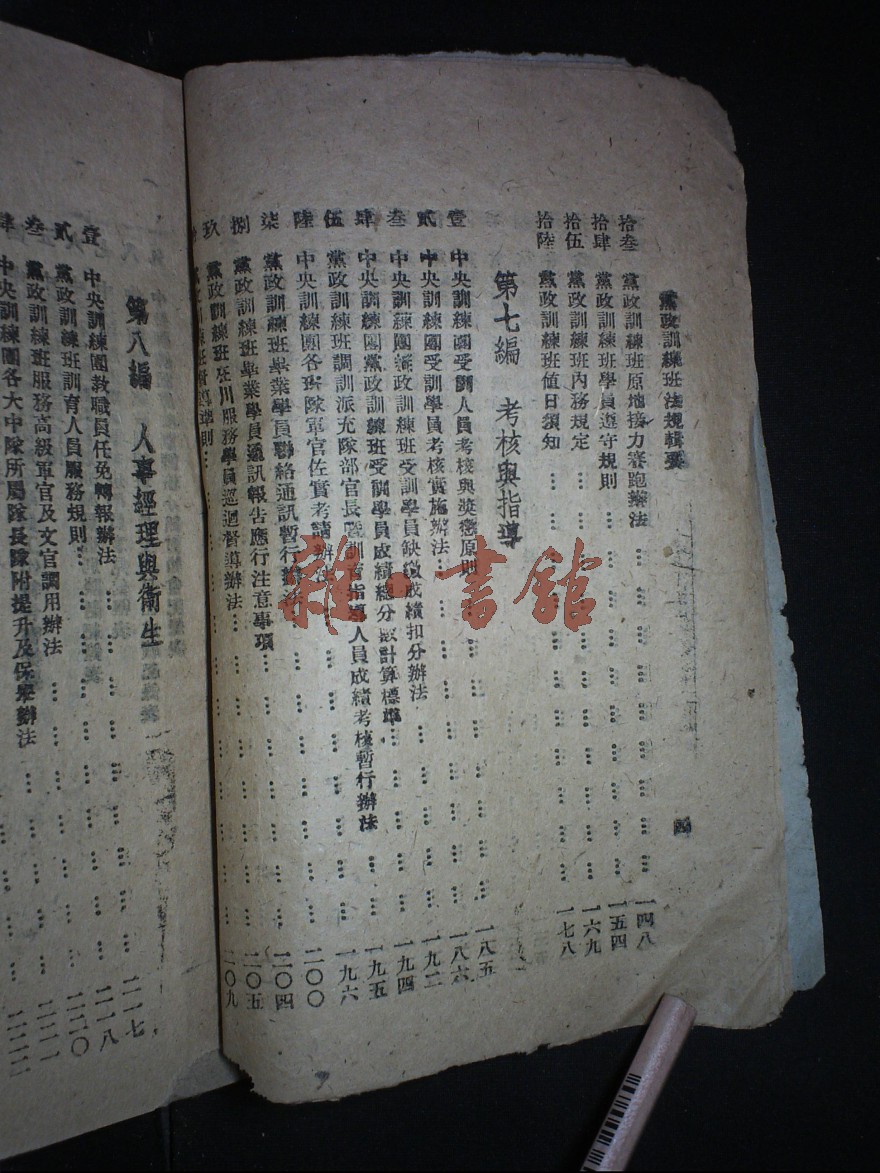 黨政訓練班法規輯要
四
拾叁 黨政訓練班原地接力賽跑辦法 一四八
拾肆 黨政訓練班學員遵守規則 一五四
拾伍 黨政訓練班內務規定 一六九
拾陸 黨政訓練班值日須知 一七八
第七編 考核與指導
壹 中央訓練團受訓人員考核與獎懲原則 一八五
貳 中央訓練團受訓學員考核實施辦法 一八六
叁 中央訓練團黨政訓練班受訓學員缺繳成績扣分辦法 一九二
肆 中央訓練團黨政訓練班受訓學員成績總分數計算標準 一九四
伍 黨政訓練班調訓派充隊部官長暨訓育指導人員成績考核暫行辦法 一九五
陸 中央訓練團各班隊軍官佐實考績辦法 一九六
柒 黨政訓練班畢業學員聯絡通訊暫行辦法 二〇〇
捌 黨政訓練班畢業學員通訊報告應行注意事項 二〇四
玖 黨政訓練班在川服務學員巡迴督導辦法 二〇五
二〇九
第八編 人事經理與衛生
壹 中央訓練團教職員任免轉報辦法 二一七
貳 黨政訓練班訓育人員服務規則 二一八
叁 黨政訓練班服務高級軍官及文官調用辦法 二二〇
肆 中央訓練團各大中隊所屬隊長隊附提升及保舉辦法
雜·書館